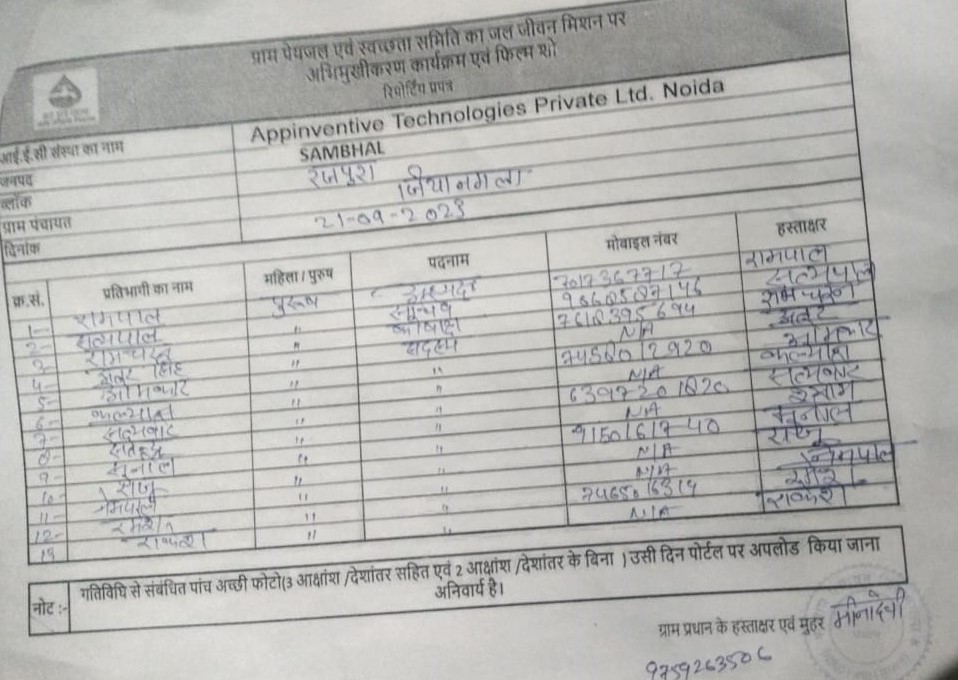 ग्राम पेयजल एवं स्वच्छता समिति का जल जीवन मिशन पर
अभिमुखीकरण कार्यक्रम एवं फिल्म शो
रिपोर्टिंग प्रपत्र
आई.ई.सी संस्था का नाम Appinventive Technologies Private Ltd. Noida
जनपद SAMBHAL
ब्लॉक रजपुरा
ग्राम पंचायत जियानगला
दिनांक 21-09-2023
क्र.सं. प्रतिभागी का नाम महिला / पुरुष पदनाम मोबाइल नंबर हस्ताक्षर
1- रामपाल पुरुष 7017367717 रामपाल
2- सत्यपाल " सत्यपाल
3- रामचरन " 7618395694 रामचरन
4- सिंह " सदस्य N/A
5- ओमकार " " ओमकार
6- कल्यान " " N/A कल्यान
7- सत्यवीर " " 6397201820 सत्यवीर
8- " " N/A
9- सुनील " " सुनील
10- राजू " " N/A राजू
11- नेमपाल " " N/A नेमपाल
12- रमेश " " रमेश
13 राकेश " " N/A राकेश
नोट :- गतिविधि से संबंधित पांच अच्छी फोटो(3 आक्षांश /देशांतर सहित एवं 2 आक्षांश /देशांतर के बिना ) उसी दिन पोर्टल पर अपलोड किया जाना
अनिवार्य है।
ग्राम प्रधान के हस्ताक्षर एवं मुहर मीनादेवी
9759263506